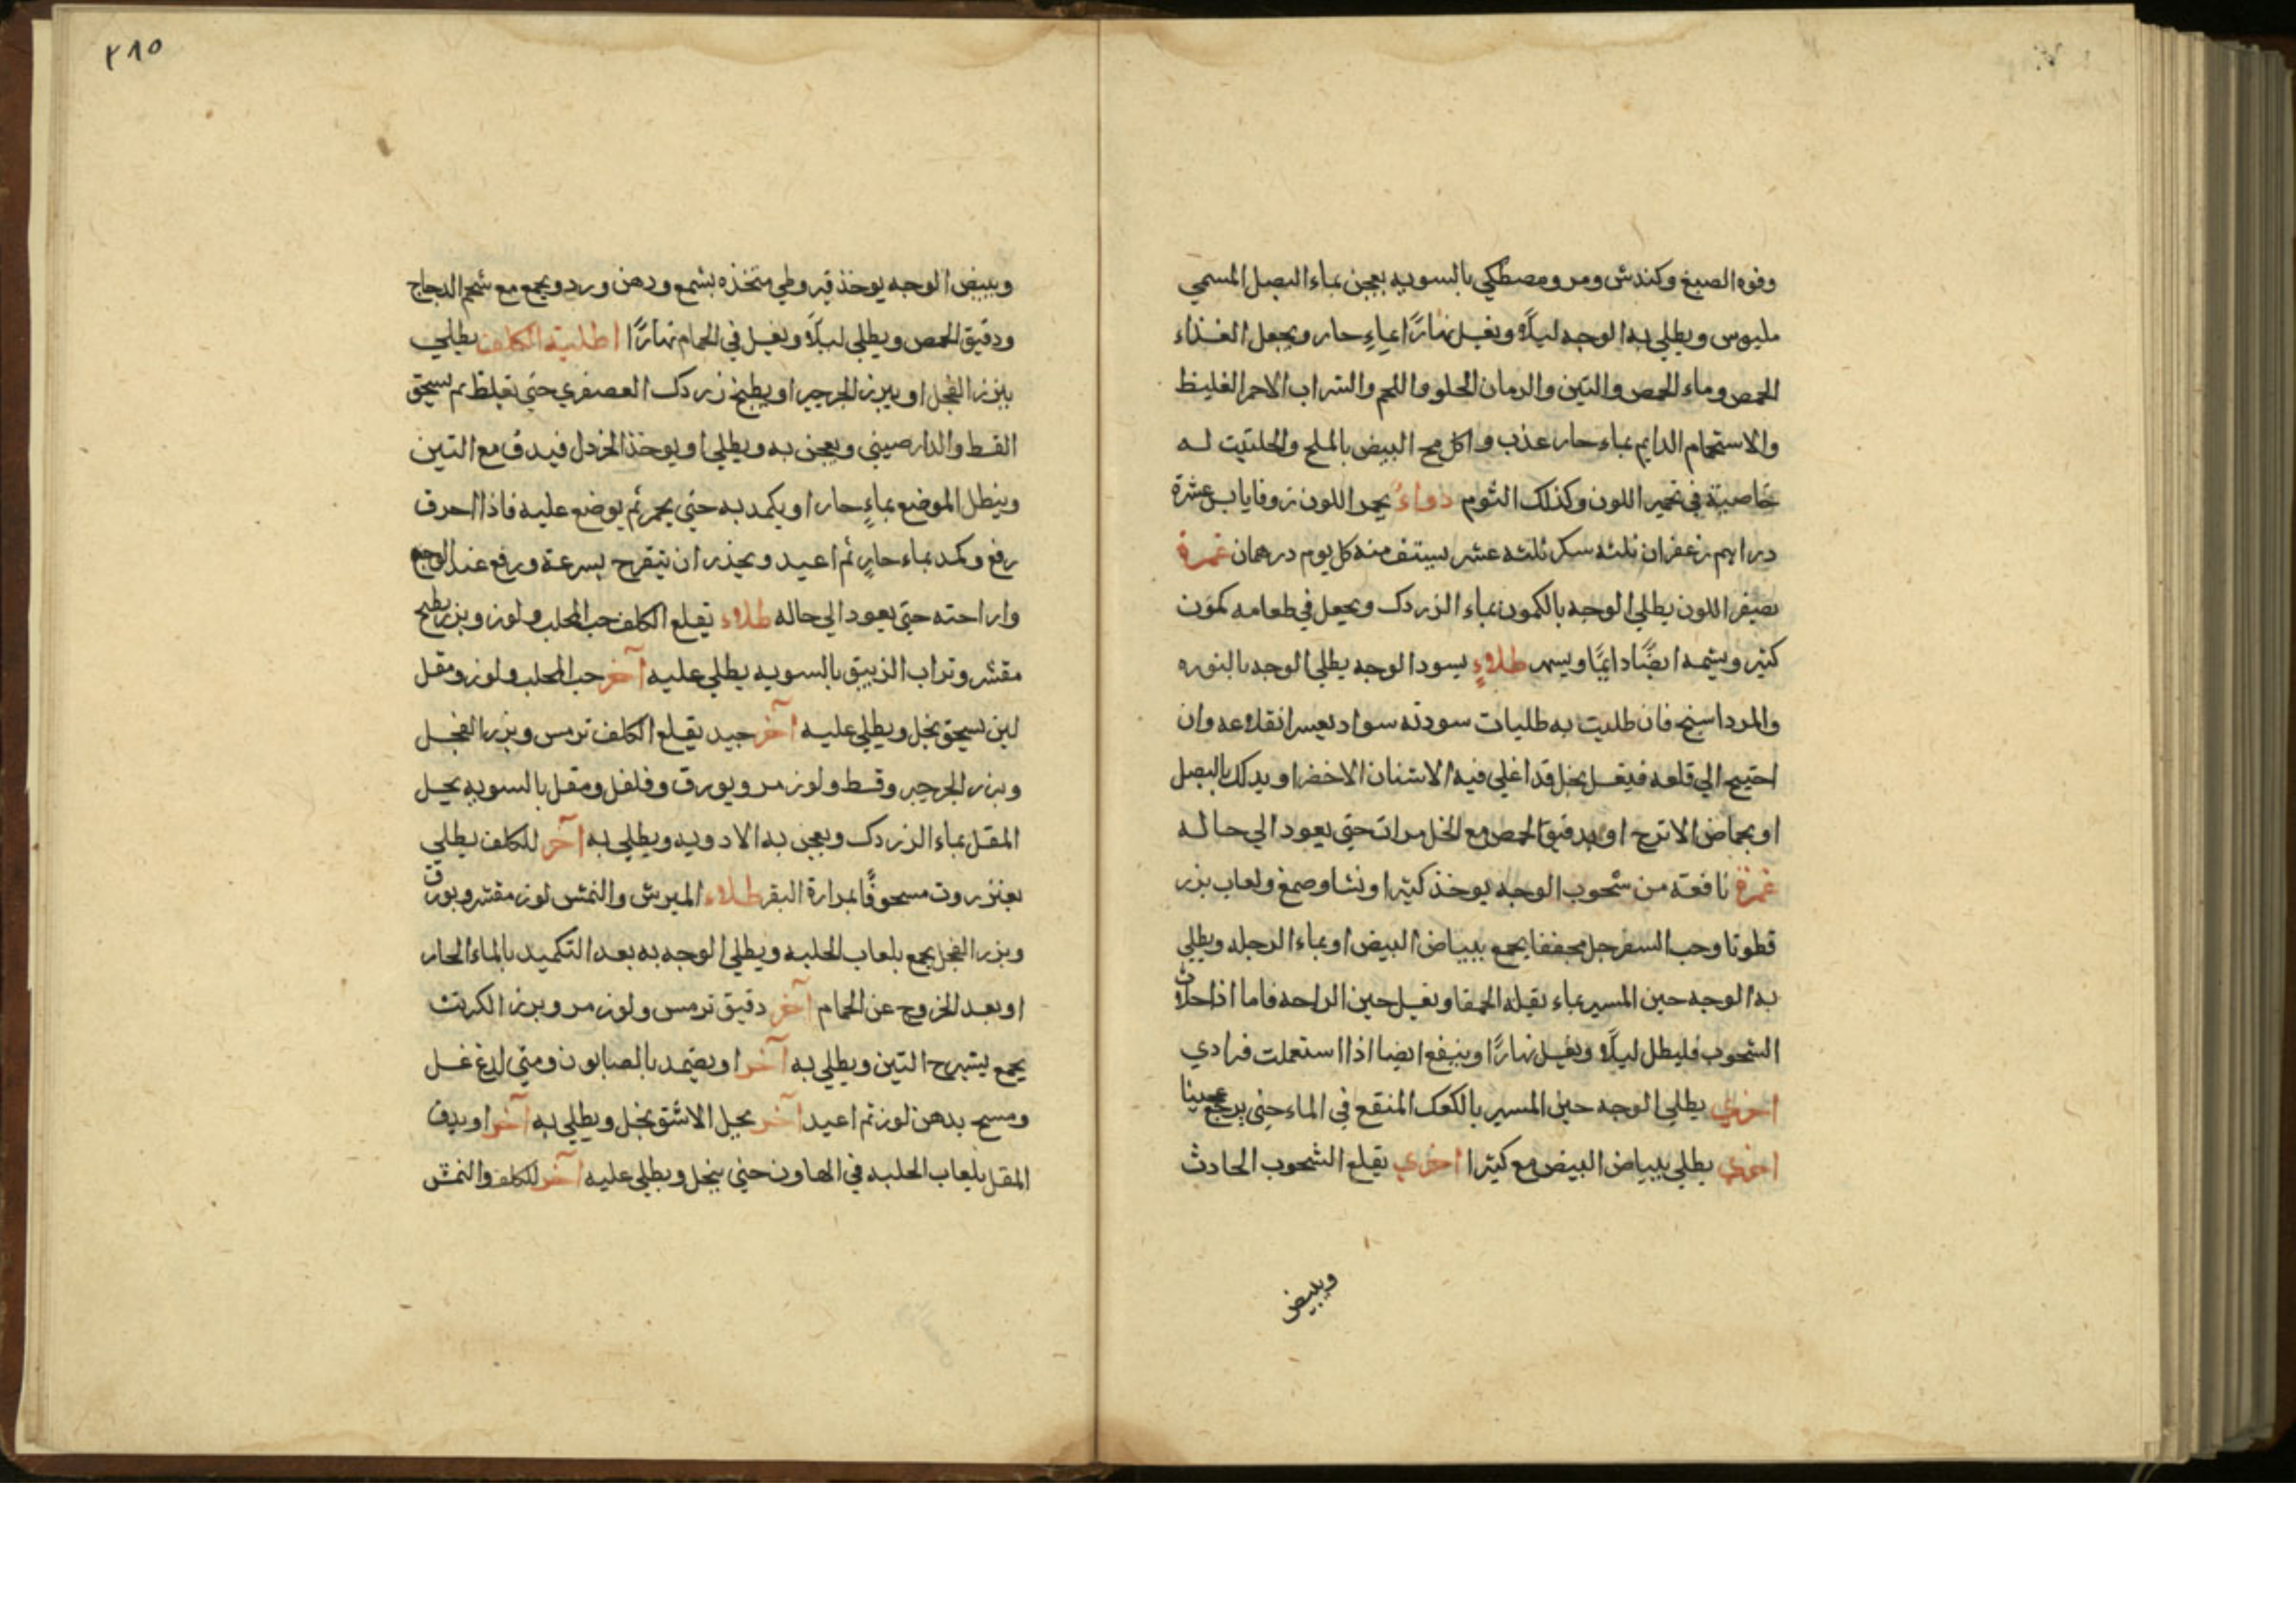 وفوه الصبغ وكندش ومر ومصطكي بالسويه يعجن بماء البصل المسمي
ملبوس ويطلي به الوجه ليلًا ويغسل نهارًا بماءٍ حار ويجعل الغذاء
الحمص وماء الحمص والتين والرمان الحلو واللحم والشراب الاحمر الغليظ
والاستحمام الدايم بماء حار عذب واكل مح البيض بالملح والحلتيت له
خاصية في تحمير اللون وكذلك الثوم دواءٌ يحمر اللون زوفا يابس عشرة
دراهم زعفران ثلثه سكر ثلثه عشر يستف منه كل يوم درهمان غمرة
تصفر اللون يطلي الوجه بالكمون بماء الزردك ويجعل في طعامه كمون
كثير ويشمه ايضًا دايمًا ويسهر طلاءٍ يسود الوجه يطلي الوجه بالنوره
والمرداسنج فان طليت به طليات سودته سواد يعسر انقلاعه وان
احتيج الي قلعه فيغسل بخل قد اغلي فيه الاشنان الاخضر او يدلك بالبصل
او بحماض الاترج او بدقيق الحمص مع الخل مرات حتي يعود الي حاله
غمرة نافعة من شحوب الوجه يوخذ كثيرا ونشا وصمغ ولعاب بزر
قطونا وحب السفرجل مجففا يجمع ببياض البيض او بماء الرجله ويطلي
به الوجه حين المسير بماء بقلة الحمقا ويغسل حين الراحه فاما اذا حدث
الشحوب فليطل ليلًا ويغسل نهارًا وينفع ايضا اذا استعملت فرادي
اخري يطلي الوجه حين المسير بالكعك المنقع في الماء حتي يرجع عجينا
اخري يطلي ببياض البيض مع كثيرا اخري يقلع الشحوب الحادث
ويبيض
٢١٥
ويبيض الوجه يوخذ قيروطي متخذه بشمع ودهن ورد ويجمع مع شحم الدجاج
ودقيق الحمص ويطلي ليلًا ويغسل في الحمام نهارًا اطلية الكلف يطلي
ببزر الفجل او ببزر الجرجير او يطبخ زردك العصفري حتي يغلظ ثم يسحق
القسط والدارصيني ويعجن به ويطلي او يوخذ الخردل فيدق مع التين
وينطل الموضع بماءٍ حار او يكمد به حتي يحمر ثم يوضع عليه فاذا احرق
رفع وكمد بماء حارٍ ثم اعيد ويحذر ان يتقرح بسرعة ورفع عند الوجع
واراحته حتي يعود الي حاله طلاء يقلع الكلف حب المحلب ولوز وبزر بطيخ
مقشر وتراب الزيبق بالسويه يطلي عليه آخر حب المحلب ولوز ومقل
لين يسحق بخل ويطلي عليه آخر جيد يقلع الكلف ترمس وبزر الفجل
وبزر الجرجير وقسط ولوز مر وبورق وفلفل ومقل بالسويه يحل
المقل بماء الزردك ويعجن به الادويه ويطلي به آخر للكلف يطلي
بعنزروت مسحوقًا بمرارة البقر طلاء البرش والنمش لوز مقشر وبورق
وبزر الفجل يجمع بلعاب الحلبه ويطلي الوجه به بعد التكميد بالماء الحار
او بعد الخروج عن الحمام آخر دقيق ترمس ولوز مر وبزر الكرنب
يجمع بشيرج التين ويطلي به آخر او يضمد بالصابون ومتي لدغ غسل
ومسح بدهن لوز ثم اعيد آخر يحل الاشق بخل ويطلي به آخر او يدق
المقل بلعاب الحلبه في الهاون حتي ينحل ويطلي عليه آخر للكلف والنمش